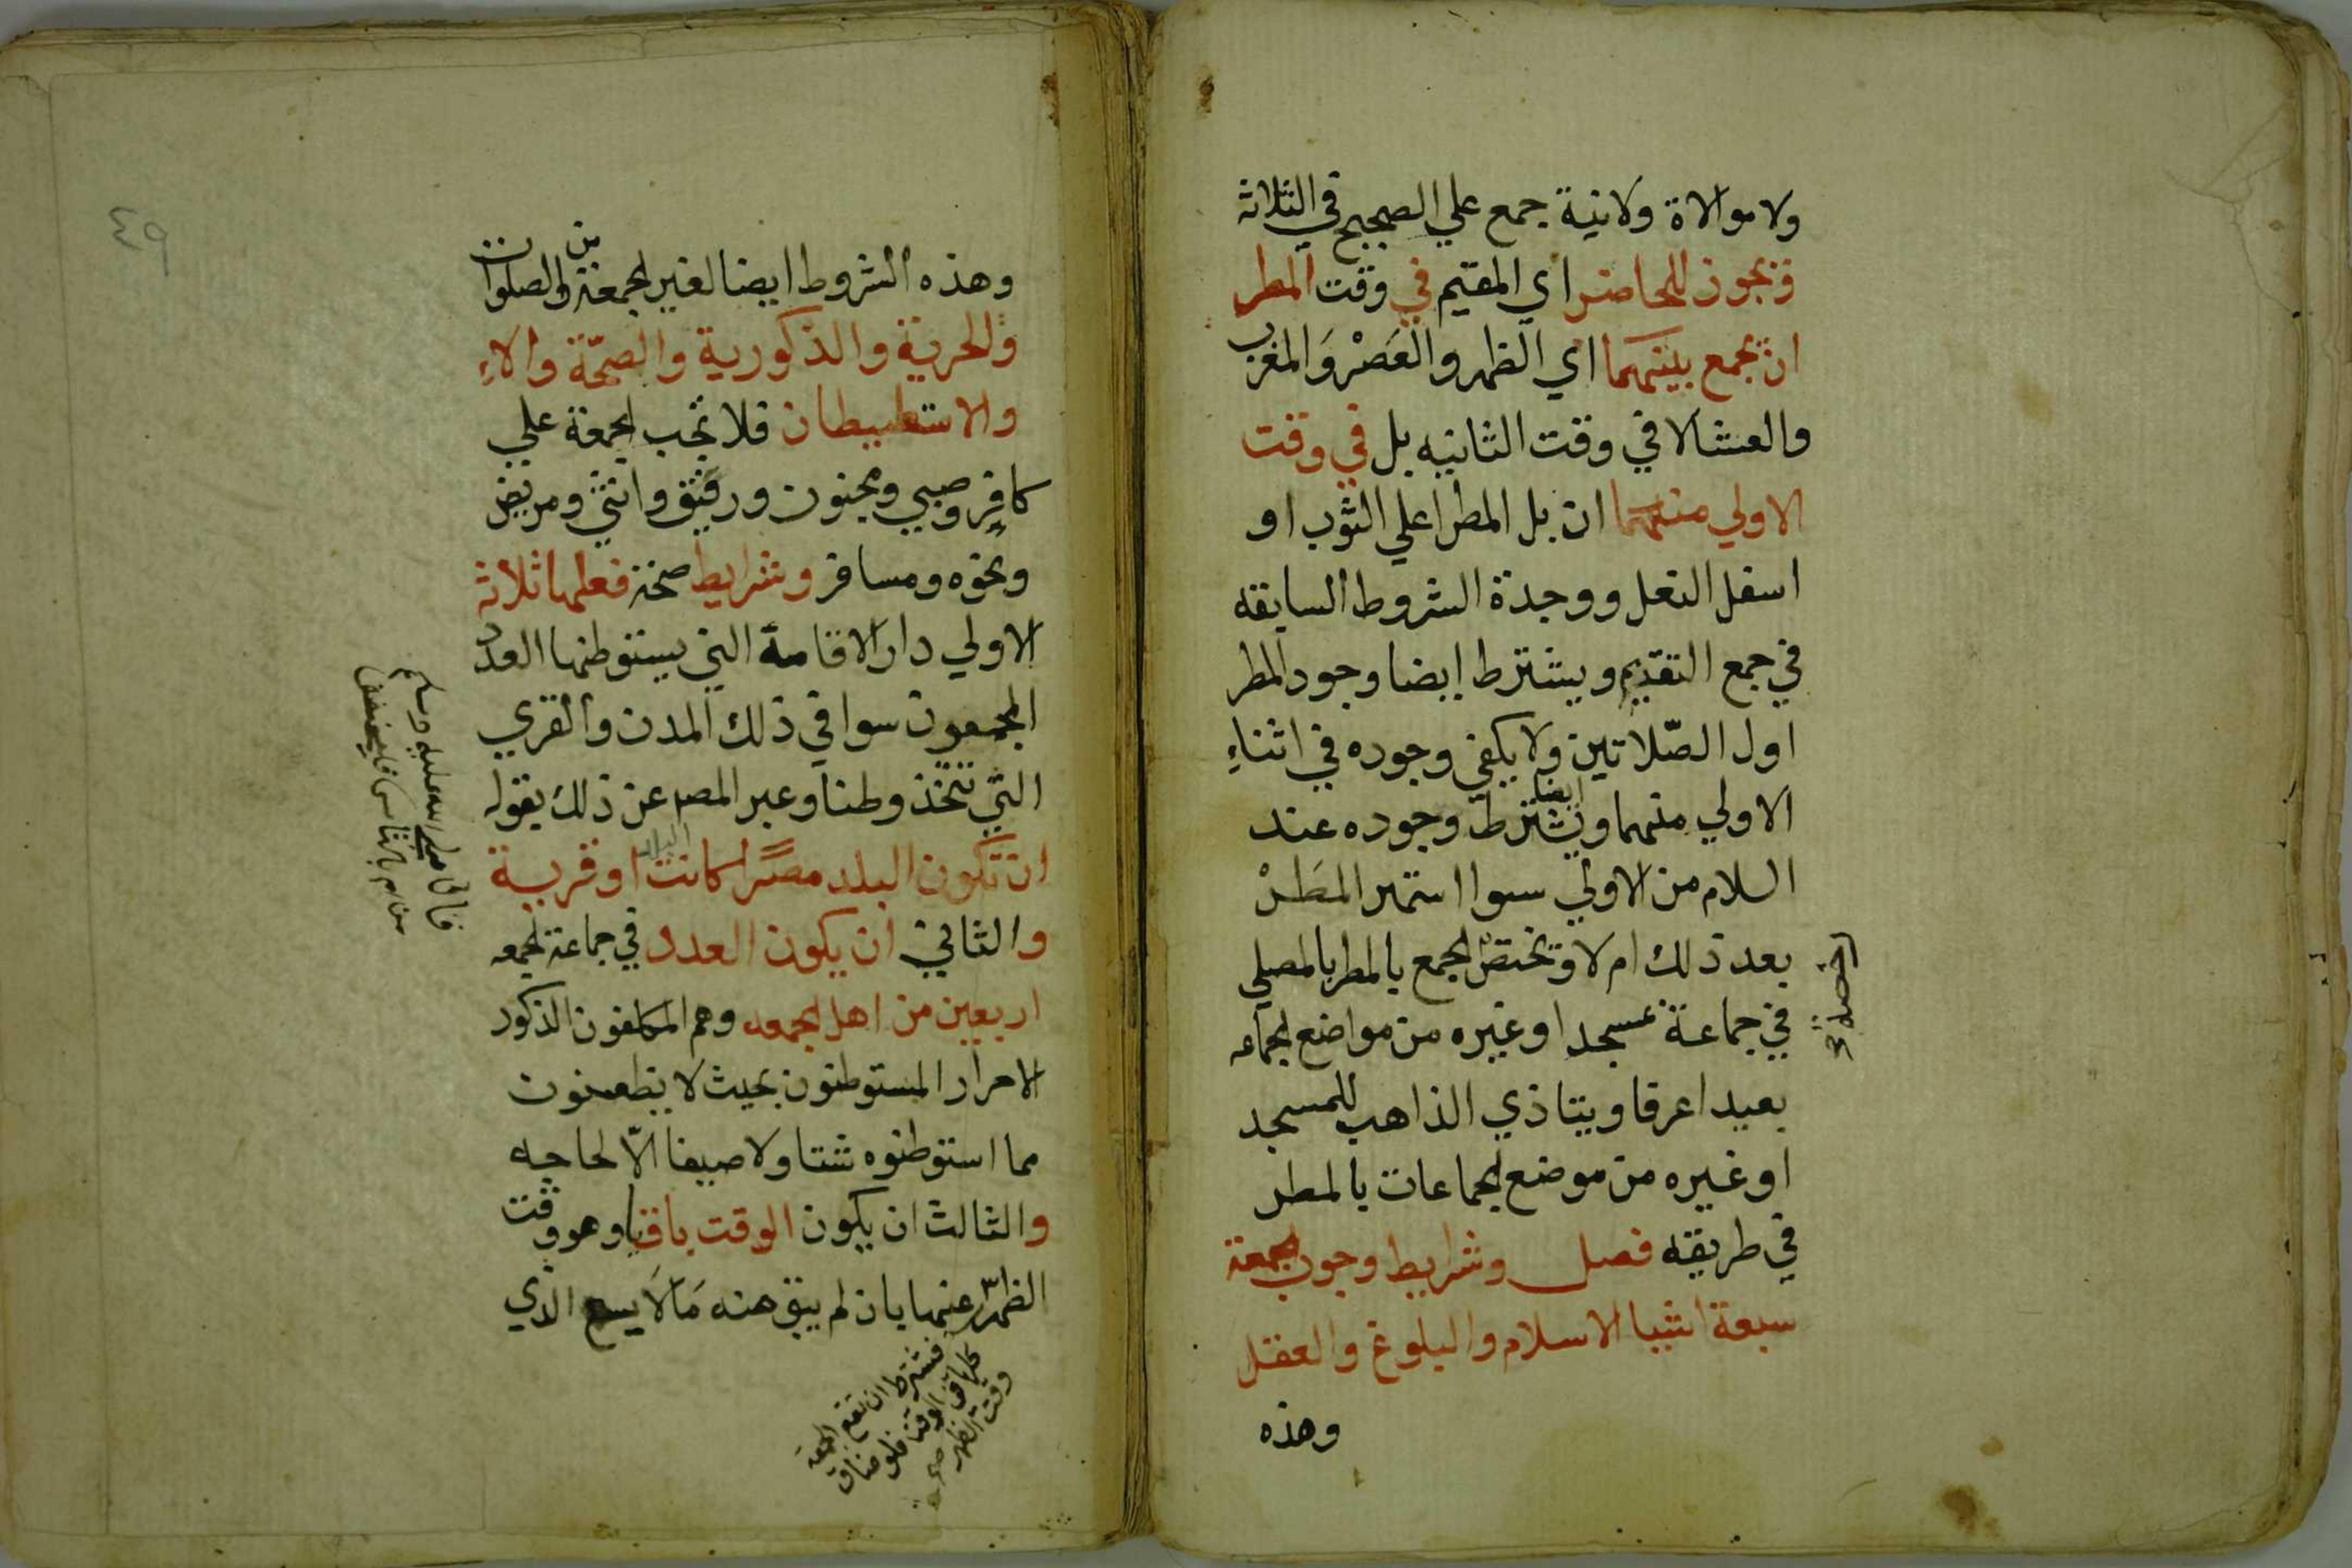 ولا موالاة ولانية جمع علي الصحيح في الثلاثة
ويجوز للحاضر اي المقيم في وقت المطر
ان يجمع بينهما اي الظهر والعَصْر وَالمغرب
والعشا لا في وقت الثانيه بل في وقت
الاولي منهما ان بل المطر اعلي الثوب او
اسفل النعل ووجدة الشروط السابقه
في جمع التقديم ويشترط ايضا وجود المطر
اول الصّلاتين ولا يكفي وجوده في اثناءِ
الاولي منهما ويشترط ايضا وجوده عند
السلام من الاولي سوا استمر المَطَرْ
بعد ذلك ام لا وتختص الجمع بالمطر بالمصلي
في جماعة بمسجد او غيره من مواضع الجماعه
بعيد اعرفا ويتاذي الذاهب للمسجد
او غيره من موضع الجماعات بالمطر
في طريقه فصل وشرايط وجوب الجمعة
سبعة اشيا الاسلام والبلوغ والعقل
وهذه
٤٩
وهذه الشروط ايضا لغير الجمعة من الصلوات
والحرية والذكورية والصحّة والاءِ
والاستطيطان فلا تجب الجمعة علي
كافر وصبي ومجنون ورقيق وانثي ومريض
ونحوه ومسافر وشرايط صحة فعلها ثلاثة
الاولي دار الاقامة التي يستوطنها العدد
المجمعون سوا في ذلك المدن والقري
التي تتخذ وطنا وعبر المصـ عن ذلك بقوله
ان تكون البلد مصرًا كانت او قرية
والثاني ان يكون العدد في جماعة الجمعه
اربعين من اهل الجمعه وهم المكلفون الذكور
الاحرار المستوطنون بحيث لا يظعنون
مما استوطنوه شتا ولا صيفا الّا لحاجه
والثالث ان يكون الوقت باقيا وهو وقت
الظهر عنها بان لم يبق منه مَا لَا يسع الذي
فيشترط ان تقع الجمعه
كلها في الوقت فلو ضاق
وقت الظهر
قال صلي الله عليه وسلم
من ام بالناس فليخفف